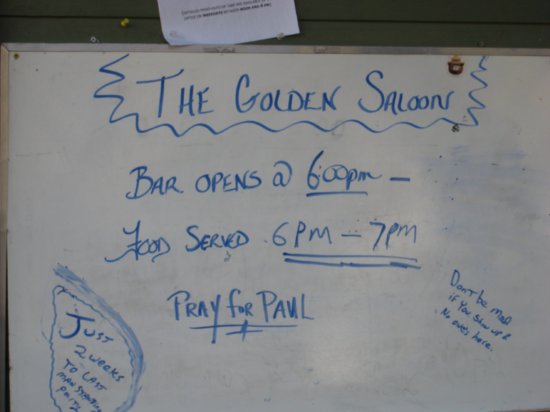 THE GOLDEN SALOON
BAR OPENS @ 6:00pm —
FOOD SERVED 6PM — 7PM
PRAY FOR PAUL
DON'T BE MAD
if YOU SHOW UP &
NO one's here.
JUST
2 WEEKS
TO LAST
MAN STANDING